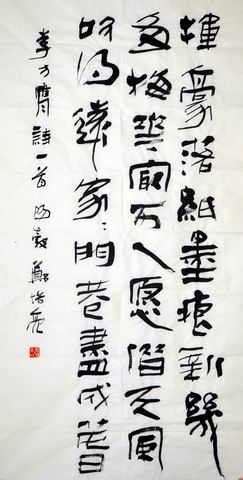 揮毫落紙墨痕新幾
点梅華最可人愿借天風
吹得遠家〻門巷盡成春
李方膺詩一首